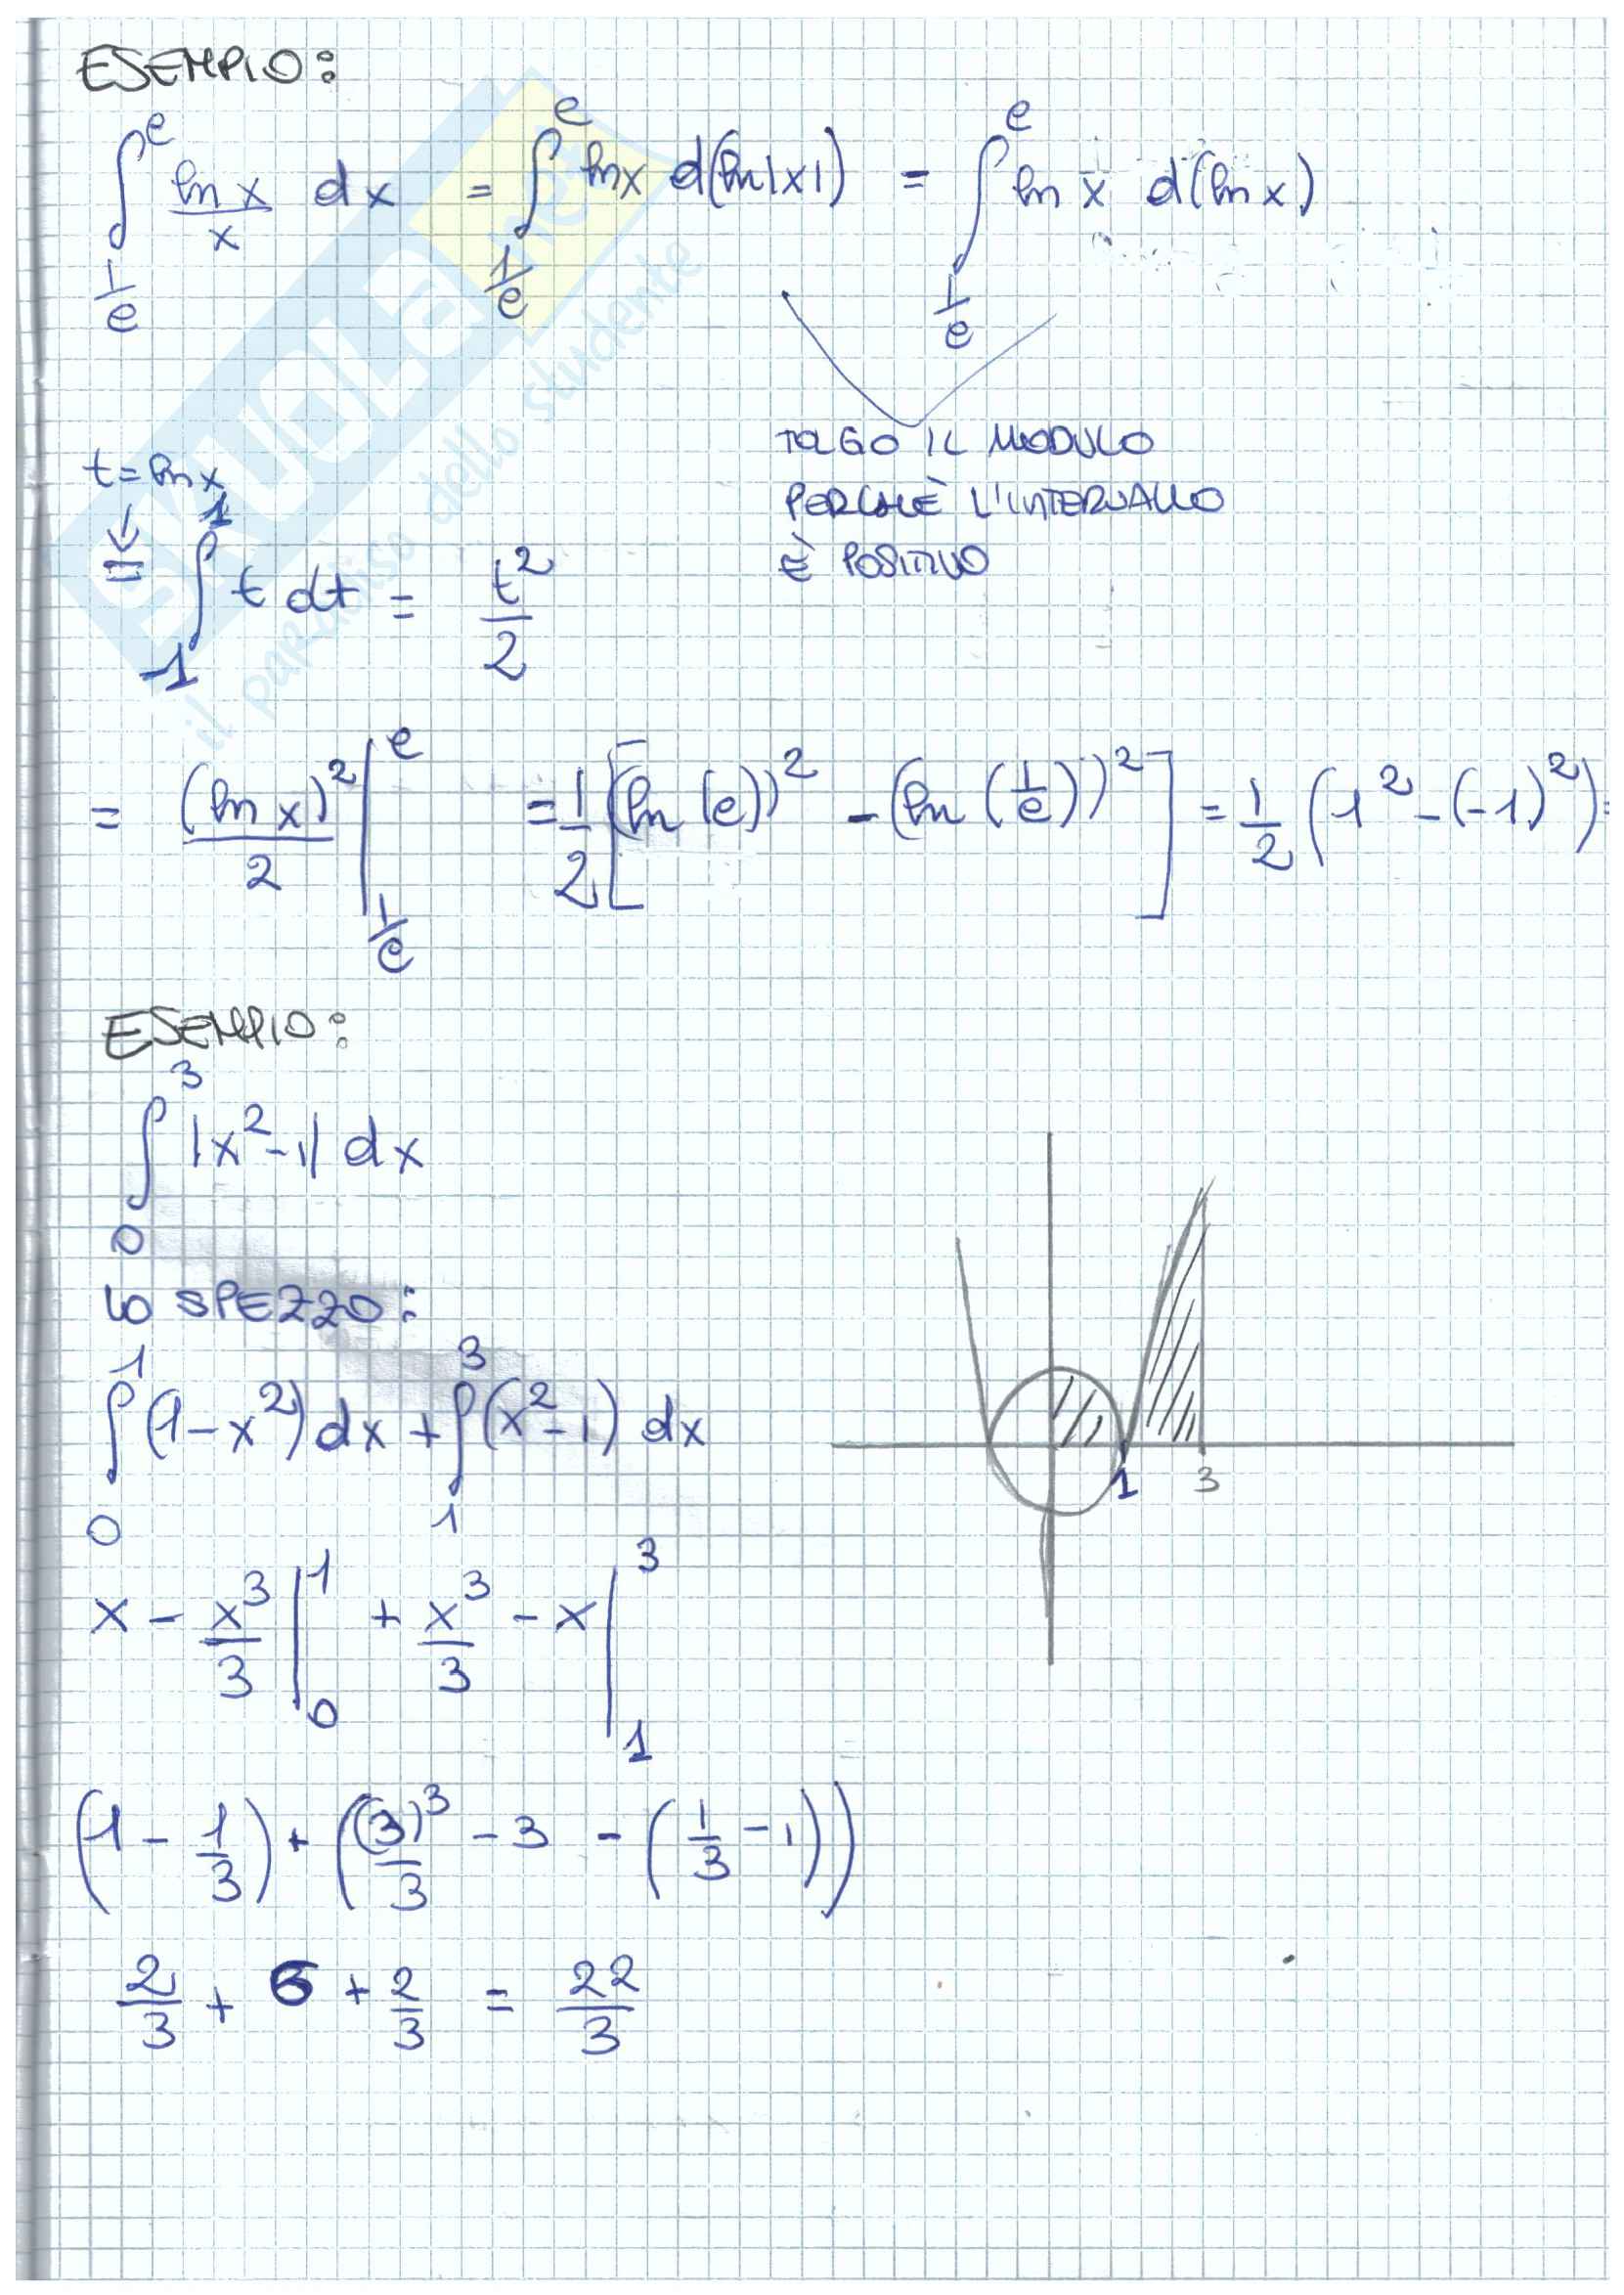 ESEMPIO:
∫_{1/e}^{e} ln x / x dx = ∫_{1/e}^{e} ln x d(ln|x|) = ∫_{1/e}^{e} ln x d(ln x)
TOLGO IL MODULO
PERCHÈ L'INTERVALLO
È POSITIVO
t = ln x
↓
= ∫_{-1}^{1} t dt = t²/2
= (ln x)²/2 |_{1/e}^{e} = 1/2 [(ln (e))² - (ln (1/e))²] = 1/2 (1² - (-1)²) =
ESEMPIO:
∫_{0}^{3} |x² - 1| dx
LO SPEZZO:
∫_{0}^{1} (1 - x²) dx + ∫_{1}^{3} (x² - 1) dx
1 3
x - x³/3 |_{0}^{1} + x³/3 - x |_{1}^{3}
(1 - 1/3) + ((3)³/3 - 3 - (1/3 - 1))
2/3 + 6 + 2/3 = 22/3
SKUOLA.net
il paradiso dello studente